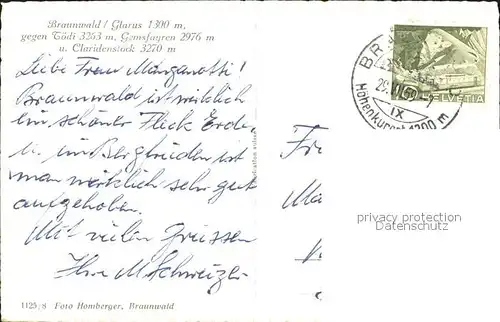 Braunwald / Glarus 1300 m,
gegen Tödi 3253 m, Gemsfayren 2976 m
u. Claridenstock 3270 m
Liebe Frau Manganotti!
Braunwald ist wirklich
ein schöner Fleck Erde,
u. im Bergfrieden ist
man wirklich sehr gut
aufgehoben.
Mit vielen Grüssen
Ihre M. Schweizer
1125/8 Foto Homberger, Braunwald
BR
HELVETIA
IX
Höhenkurort 1300 m
privacy protection
Datenschutz